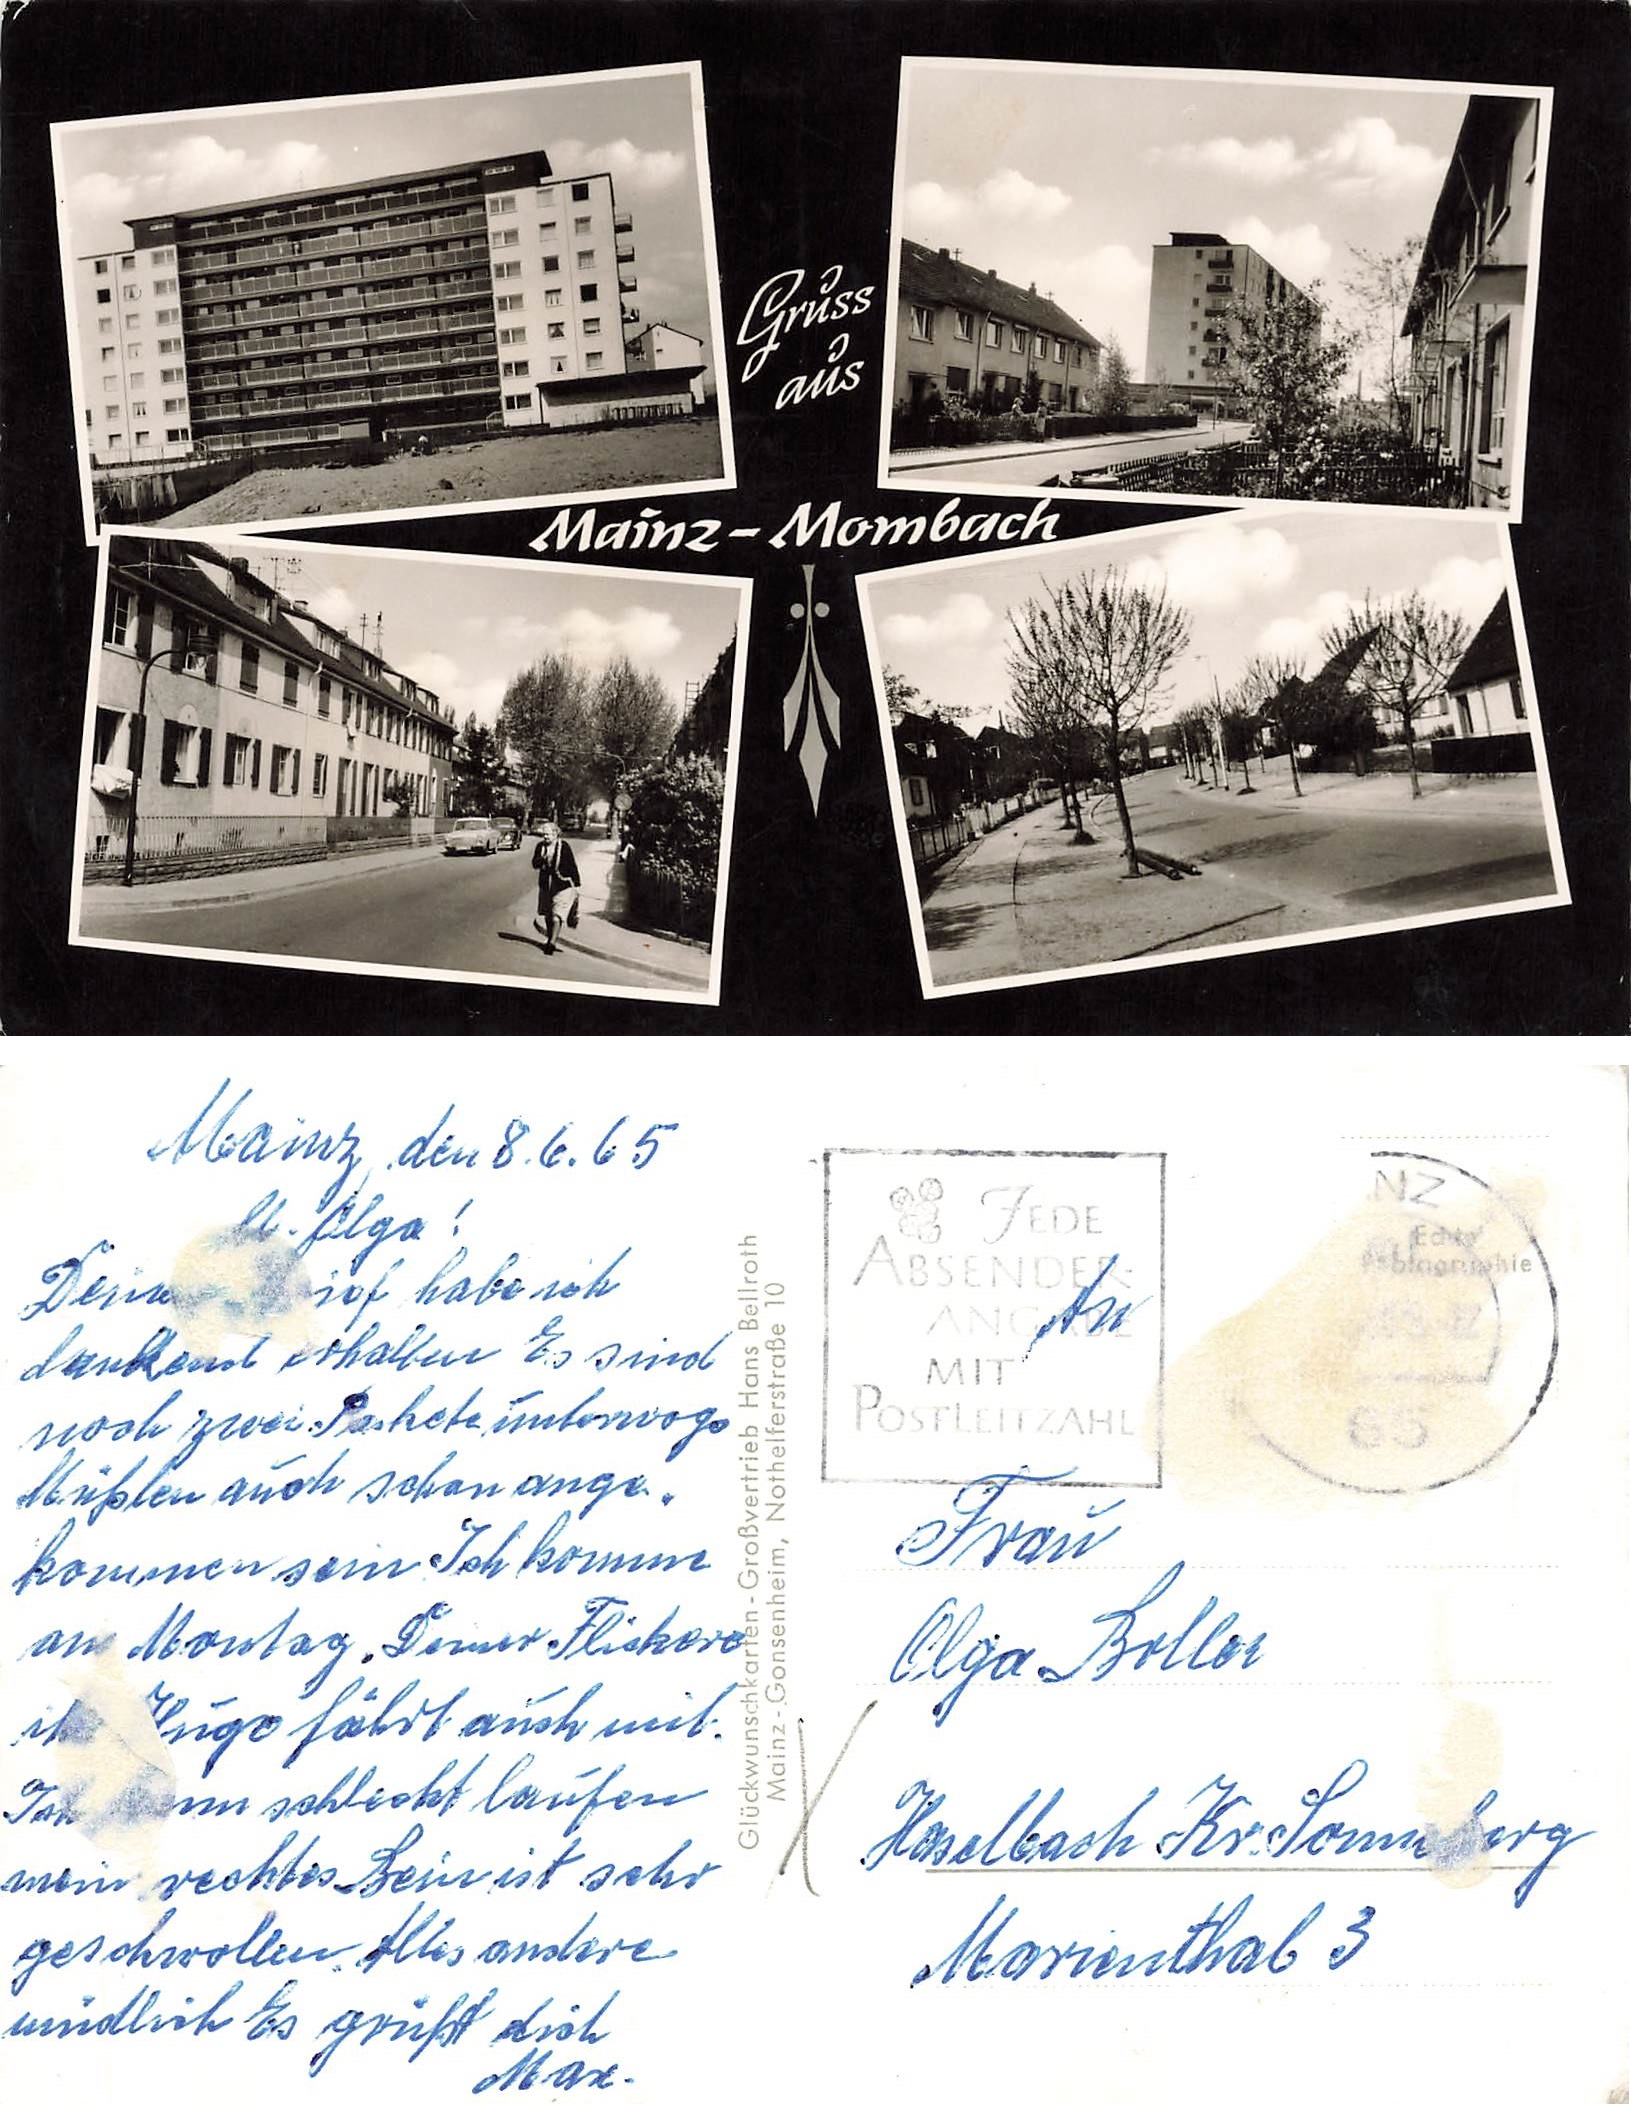 Gruss
aus
Mainz-Mombach
Mainz, den 8.6.65
Olga!
habe ich
dankend erhalten Es sind
noch zwei Pakete unterwegs
Müßten auch schon ange-
kommen sein Ich komme
am Montag.
Hugo fährt auch mit.
Ich kann schlecht laufen
mein rechtes Bein ist sehr
geschwollen. Alles andere
mündlich Es grüßt dich
Max.
Glückwunschkarten-Großvertrieb Hans Bellroth
Mainz-Gonsenheim, Nothelferstraße 10
JEDE
ABSENDER-
ANGABE
MIT
POSTLEITZAHL
NZ
Echte
Photographie
65
An
Frau
Olga Boller
Haselbach Kr. Sonneberg
Marienthal 3